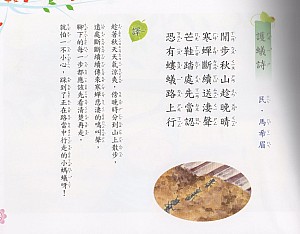 護蟻詩
民・馬希眉
閒步秋山趁晚晴
寒蟬斷續送淒聲
芒鞋踏處先當認
恐有螻蟻路上行
趁著秋天天氣涼爽，傍晚時分到山上散步，
遠處斷斷續續傳來寒蟬悲淒的鳴叫聲。
腳下的每一步都應該先看清楚再走，
就怕一不小心，踩到了正在路當中行走的小螞蟻呀！